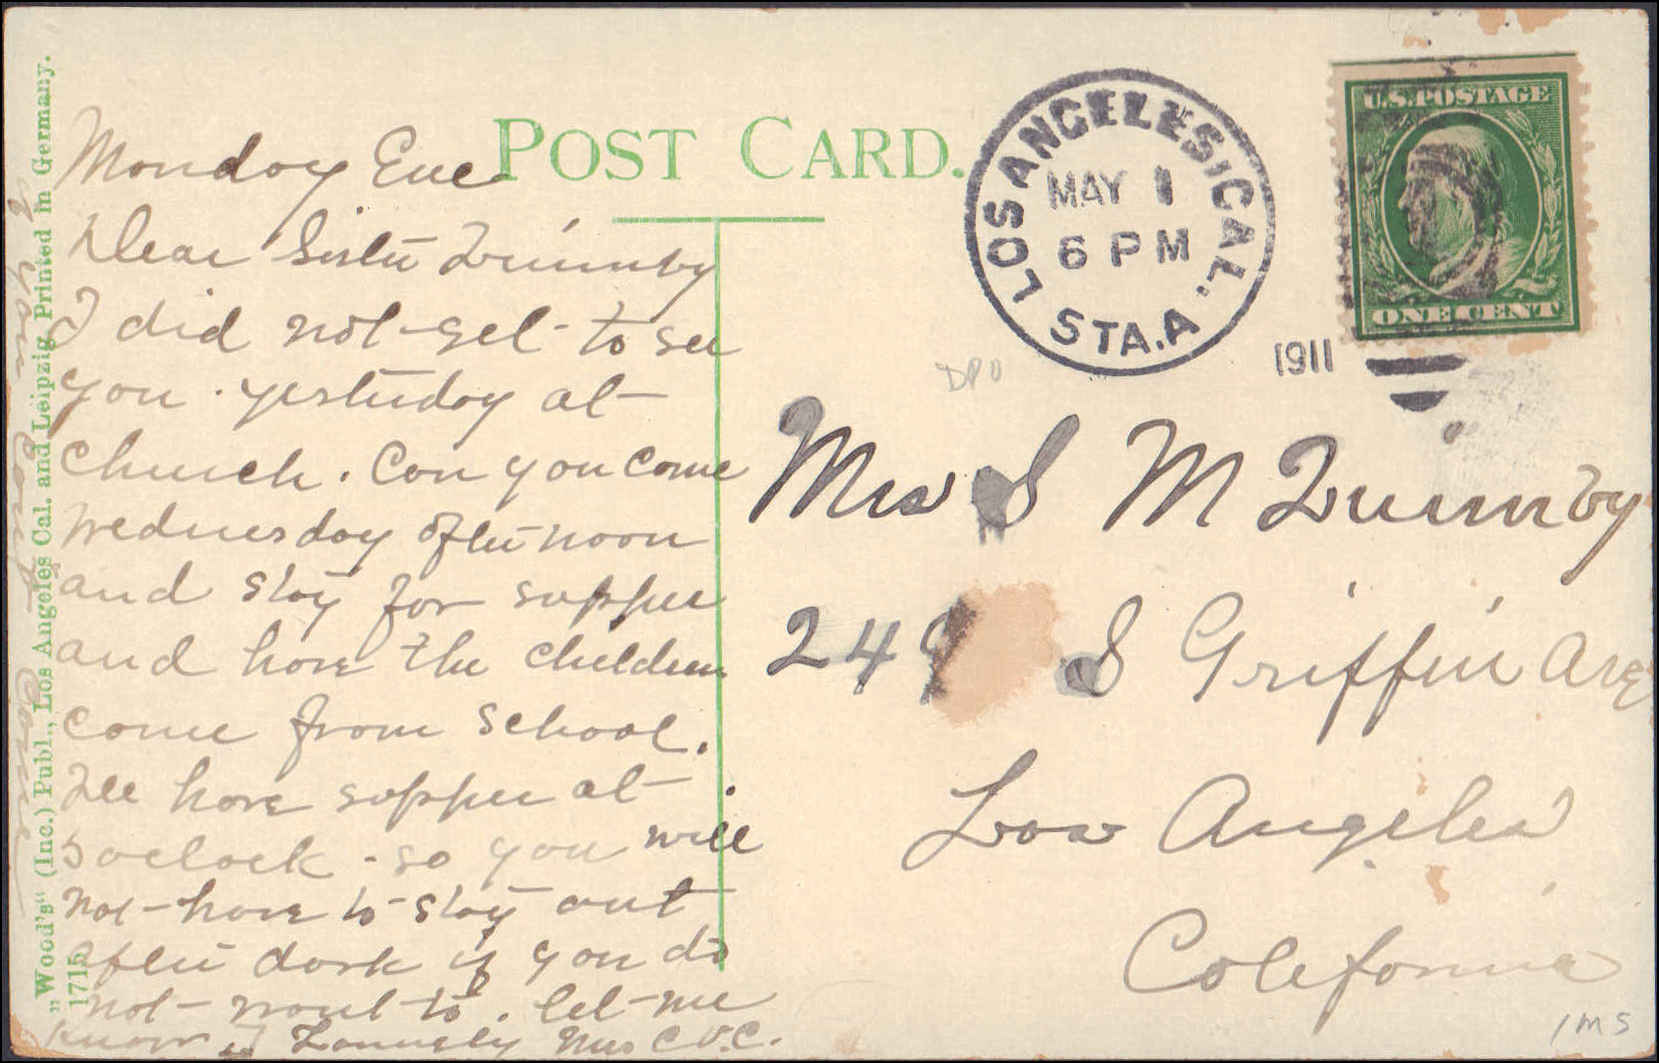 POST CARD.
Monday Eve
Dear Sister Quimby
I did not get to see
you yesterday at
church. Can you come
Wednesday afternoon
and stay for supper
and have the children
come from school.
We have supper at
5 oclock - so you will
not have to stay out
after dark if you do
not want to. let me
know if Mrs C.V.C.
you cant come
„Wood's" (Inc.) Publ., Los Angeles Cal. and Leipzig, Printed in Germany.
1715
LOS ANGELES, CAL.
MAY 1
6 PM
STA. A
1911
U.S. POSTAGE
ONE CENT
DPO
Mrs S M Quimby
249 S Griffin Ave
Los Angeles
California
1M5